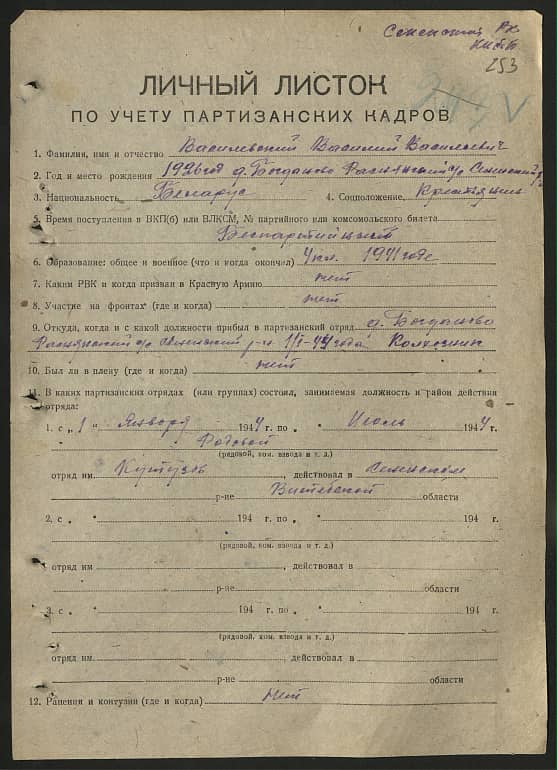 Сененский РК
КП(б)Б
253
ЛИЧНЫЙ ЛИСТОК
ПО УЧЕТУ ПАРТИЗАНСКИХ КАДРОВ
1. Фамилия, имя и отчество Василевский Василий Васильевич
2. Год и место рождения 1926 год д. Богданово с/с Сененский
3. Национальность Беларус 4. Соцположение, Крестьянин
5. Время поступления в ВКП(б) или ВЛКСМ, № партийного или комсомольского билета
Беспартийный
6. Образование: общее и военное (что и когда окончил) 4 кл. 1941 годе
7. Каким РВК и когда призван в Красную Армию нет
8. Участие на фронтах (где и когда) нет
9. Откуда, когда и с какой должности прибыл в партизанский отряд д. Богданово
с/с Сененский р-н 1/I-44 года Колхозник
10. Был ли в плену (где и когда) нет
11. В каких партизанских отрядах (или группах) состоял, занимаемая должность и район действия
отряда:
1. с „ 1 " Января 1944 г. по „ " Июль 1944 г.
Рядовой
(рядовой, ком. взвода и т. д.)
отряд им Кутузов, действовал в Сененском
р-не Витебской области
2. с „ " 194 г. по „ " 194 г.
(рядовой, ком. взвода и т. д.)
отряд им , действовал в
р-не области
3. с „ " 194 г. по „ " 194 г.
(рядовой, ком. взвода и т. д.)
отряд им , действовал в
р-не области
12. Ранения и контузии (где и когда) нет